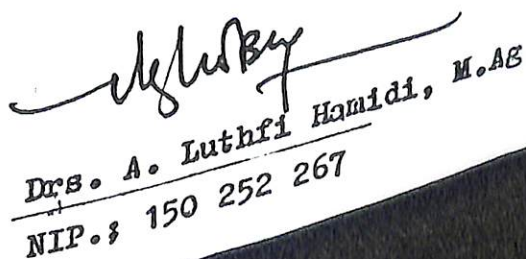 Drs. A. Luthfi Hamidi, M.Ag
NIP.: 150 252 267